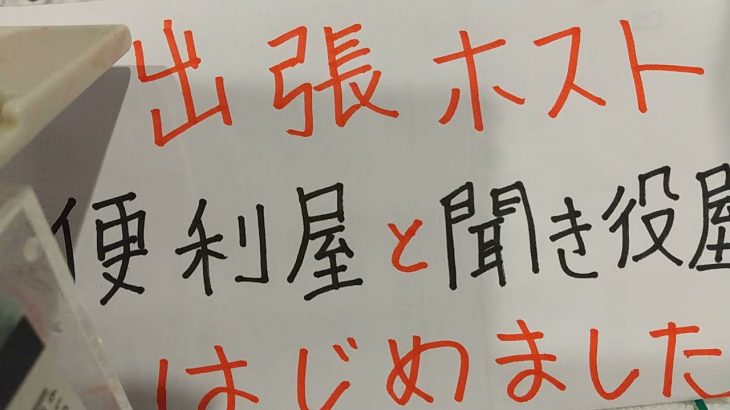 出張ホスト
便利屋と聞き役屋
はじめました